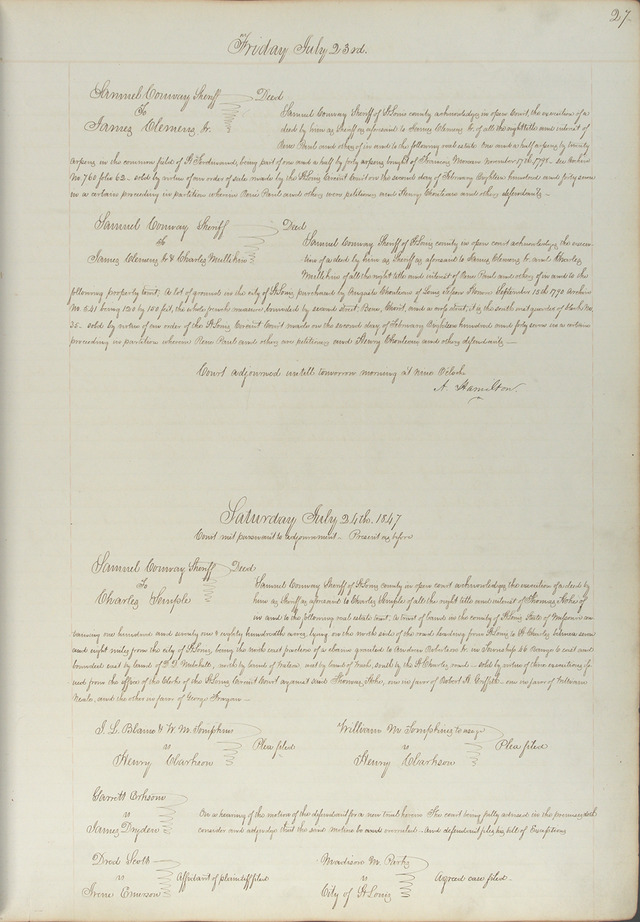 27.
Friday July 23rd.
Samuel Conway Sheriff
To
James Clemens Jr.
Deed
Samuel Conway Sheriff of St Louis county acknowledges in open Court, the execution of a
deed by him as Sheriff as aforesaid to James Clemens Jr. of all the right title and interest of
Rene Paul and others of in and to the following real estate One and a half arpens by twenty
arpens in the common field of St Ferdinand, being part of one and a half by forty arpens bought of November 17th 1791. see Archive
No 760 folio 62 sold by virtue of an order of sale made by the St Louis Circuit Court on the second day of February Eighteen hundred and forty seven
in a certain proceeding in partition wherein Rene Paul and others were petitioners and Henry Chouteau and others defendants
Samuel Conway Sheriff
To
James Clemens Jr & Charles Mullikin
Deed
Samuel Conway Sheriff of St Louis county in open court acknowledges the execu-
tion of a deed by him as Sheriff as aforesaid to James Clemens Jr. and Charles
Mullikin of all the right title and interest of Rene Paul and others of in and to the
following property to wit, A lot of ground in the city of St Louis purchased by Auguste Chouteau of September 15th 1790 Archive
No. 841 being 120 by 150 feet, the whole french measure, bounded by second street, and a cross street, it is the south east quarter of block No.
35. sold by virtue of an order of the St Louis Circuit Court made on the second day of February Eighteen hundred and forty seven in a certain
proceeding in partition wherein Rene Paul and others are petitioners and Henry Chouteau and others defendants
Court adjourned untill tomorrow morning at nine Oclock
A. Hamilton
Saturday July 24th. 1847
Court met pursuant to adjournment Present as before
Samuel Conway Sheriff
To
Charles Semple
Deed
Samuel Conway Sheriff of St Louis county in open court acknowledges the execution of a deed by
him as Sheriff as aforesaid to Charles Semple of all the right title and interest of Thomas of
in and to the following real estate to wit, a tract of land in the county of St Louis State of Missouri con-
taining one hundred and seventy one & eighty hundredths acres, lying on the north side of the road leading from St Louis to St Charles between seven
and eight miles from the city of St Louis, being the north east portion of a claim granted to Andrew in Township 46 Range 6 east and
bounded east by land of D. D. Mitchell, north by land of west by land of south by the St Charles road sold by virtue of three executions is-
sued from the office of the Clerk of the St Louis Circuit Court against said Thomas one in favor of Robert one in favor of William
and the other in favor of George
J. L. Blaine & W. M. Tompkins
vs
Henry Clarkson
Plea filed
William M Tompkins to use &c
vs
Henry Clarkson
Plea filed
Garrett
vs
James Dryden
On a hearing of the motion of the defendant for a new trial herein The court being fully advised in the premises doth
consider and adjudge that the said motion be and is overruled. And defendant files his bill of Exceptions
Dred Scott
vs
Irene Emerson
Affidavit of plaintiff filed
Madison M. Parks
vs
City of St Louis
Agreed case filed